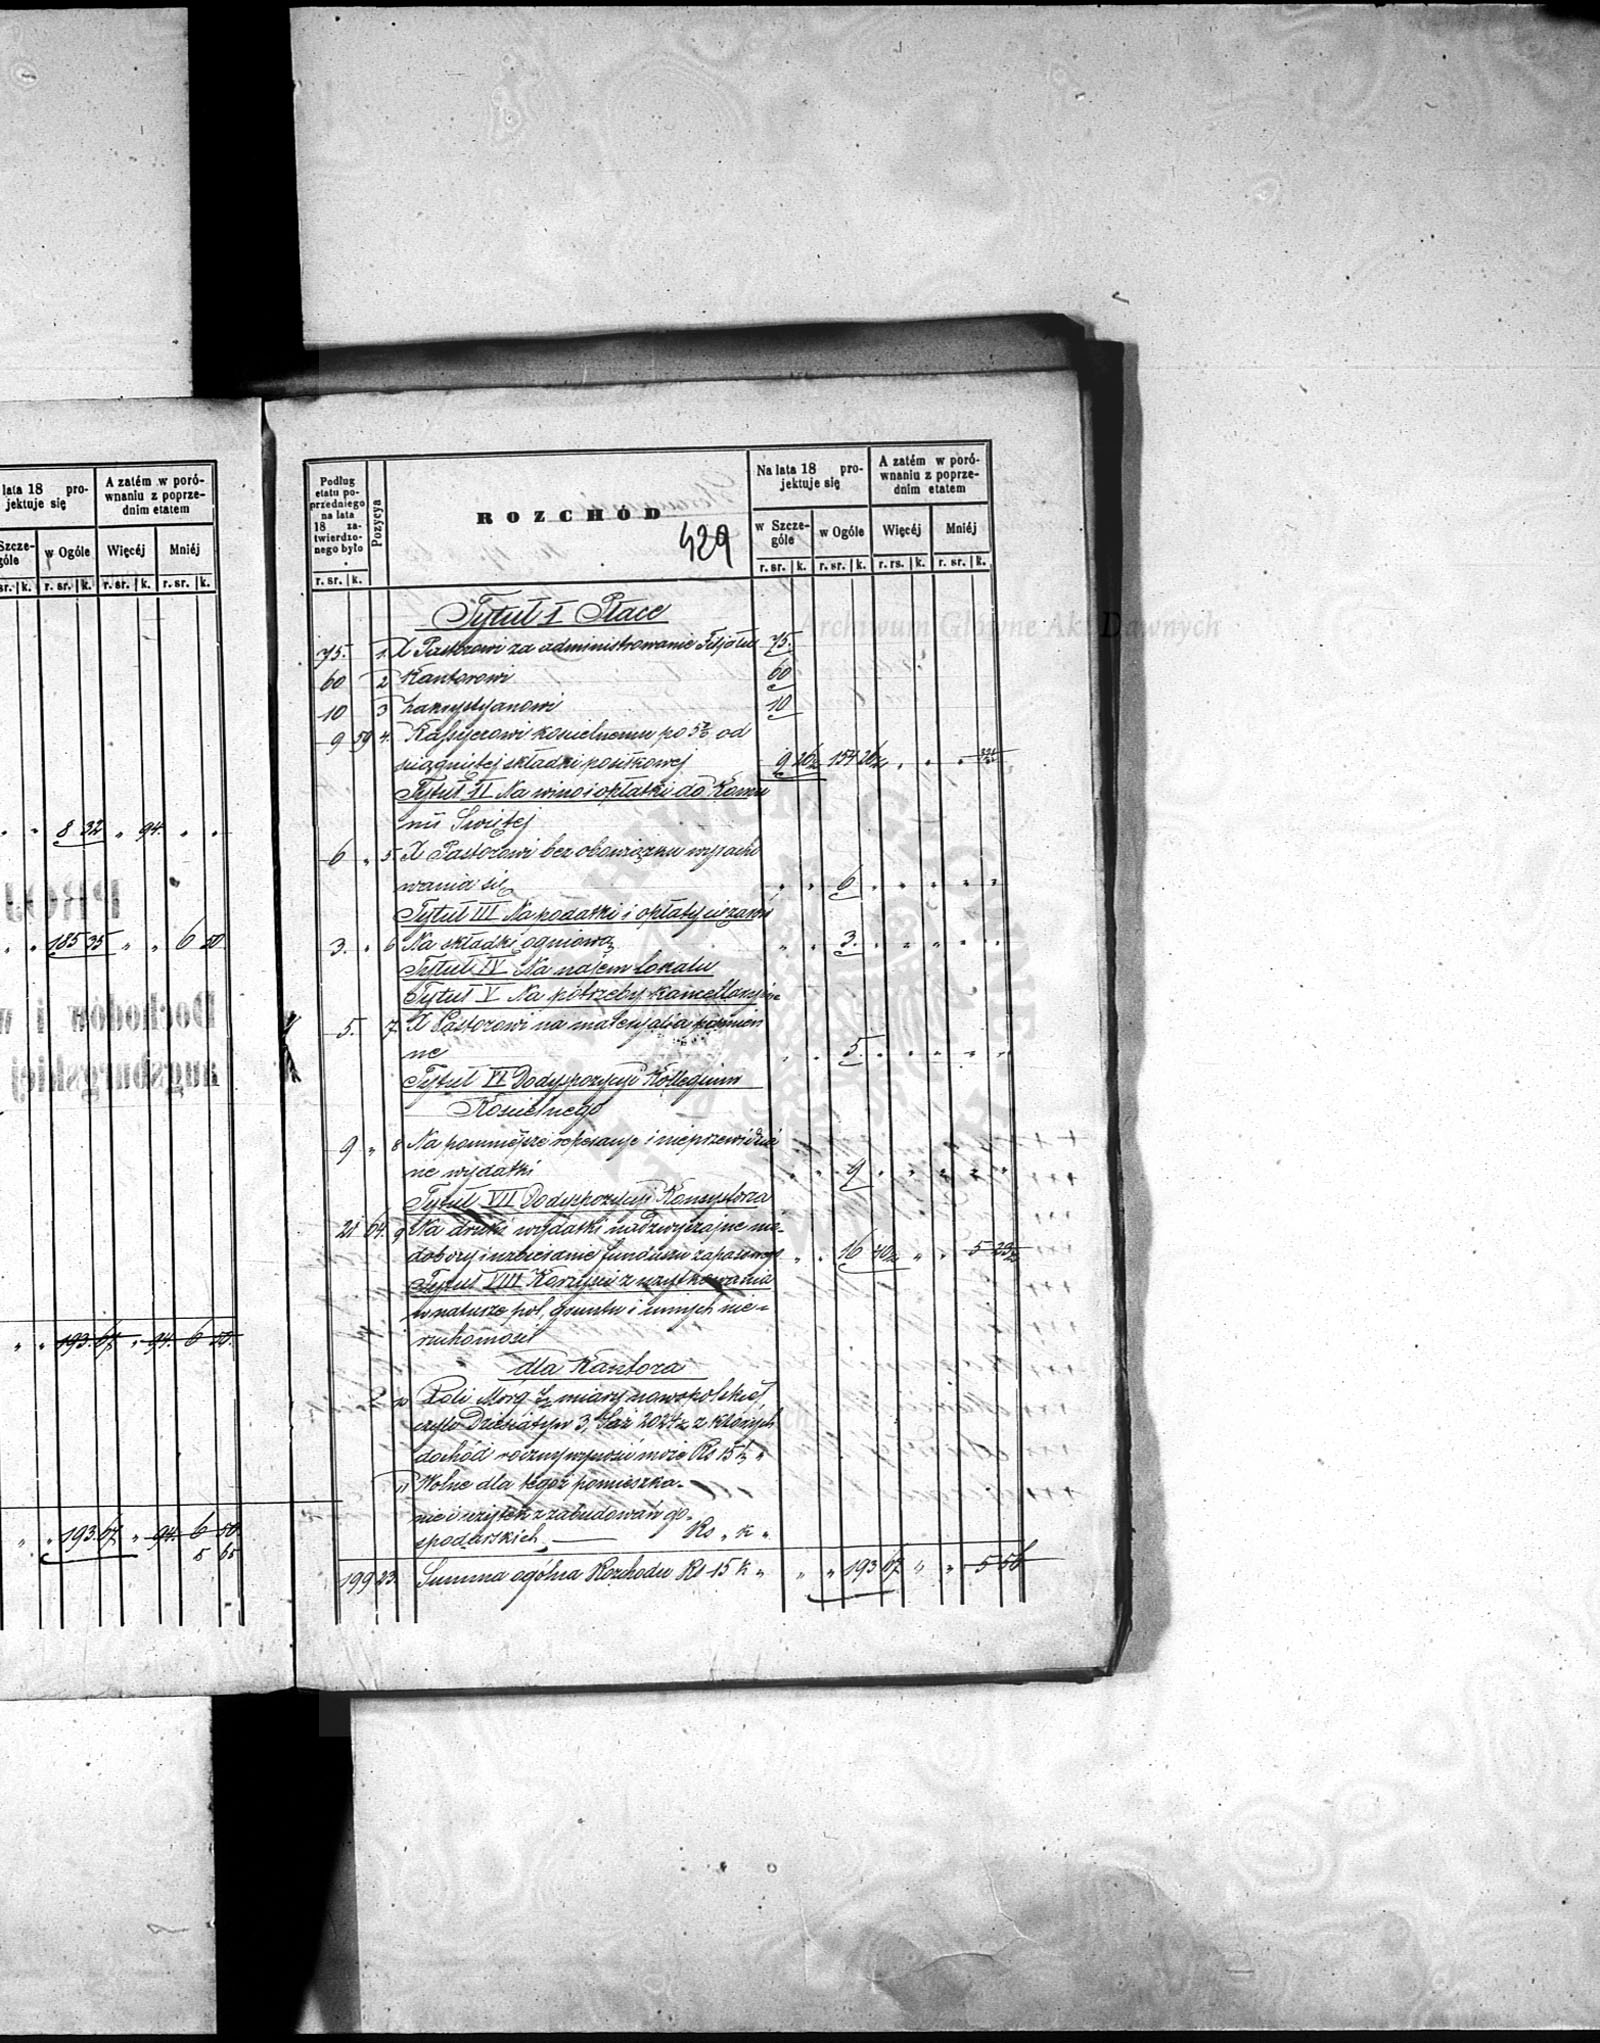 lata 18 pro-
jektuje się
A zatém w poró-
wnaniu z poprze-
dnim etatem
Szcze-
góle
w Ogóle
Więcéj
Mniéj
sr. k. r. sr. k. r. sr. k. r. sr. k.
" " 8 32 " 94 " "
" " 185 35 " " 6 50
" " 193 67 " 94 6 50
" " 193 67 " 94 6 50
5 65
Podług
etatu po-
przedniego
na lata
18 za-
twierdzo-
nego było
r. sr. k.
Pozycya
ROZCHÓD
429
Na lata 18 pro-
jektuje się
w Szcze-
góle
w Ogóle
A zatém w poró-
wnaniu z poprze-
dnim etatem
Więcéj
Mniéj
r. sr. k. r. sr. k. r. rs. k. r. sr. k.
Archiwum Główne Akt Dawnych
Tytuł I Płace
75. 1. X Pastorowi za administrowanie Filjału 75.
60 2 Kantorowi 60
10 3 Zakrystyanowi 10
9 59 4. Kassyerowi kościelnemu po 5% od
ściągniętej składki posiłkowej 9 26½ 154 26½ " " "
Tytuł II Na wino i opłatki do Komu
nii Świętej
6 " 5. X Pastorowi bez obowiązku wyracho
wania się " " 6 " " " "
Tytuł III Na podatki i opłaty
3. " 6 Na składkę ogniową " " 3. " " " "
Tytuł IV Na najem lokalu
Tytuł V Na potrzeby kancellaryjne
5. 7. X Pastorowi na materyalia piśmien
ne " " 5. " " " "
Tytuł VI Do dyspozycyi Kollegium
Kościelnego
9 " 8 Na pomniejsze reperacye i nieprzewidzia
ne wydatki " " 9 " " " "
Tytuł VII Do dyspozycyi Konsystorza
21 64. 9 Na druki wydatki nadzwyczajne nie-
dobory i uzbieranie funduszu zapasowego " " 16 40½ " " 5 23½
Tytuł VIII Korzyści z użytkowania
w naturze pól, gruntu i innych nie-
ruchomości
dla Kantora
10 Roli Morg miary nowopolskiej
czyli Dziesiatyn 3, Saż 2024½ z których
dochód roczny wynosić może Rs 15 k "
11 Wolne dla tegoż pomieszka-
nie i użytek z zabudowań go-
spodarskich — Rs " k "
199 23. Summa ogólna Rozchodu Rs 15 k " " " 193 67 " " 5 56